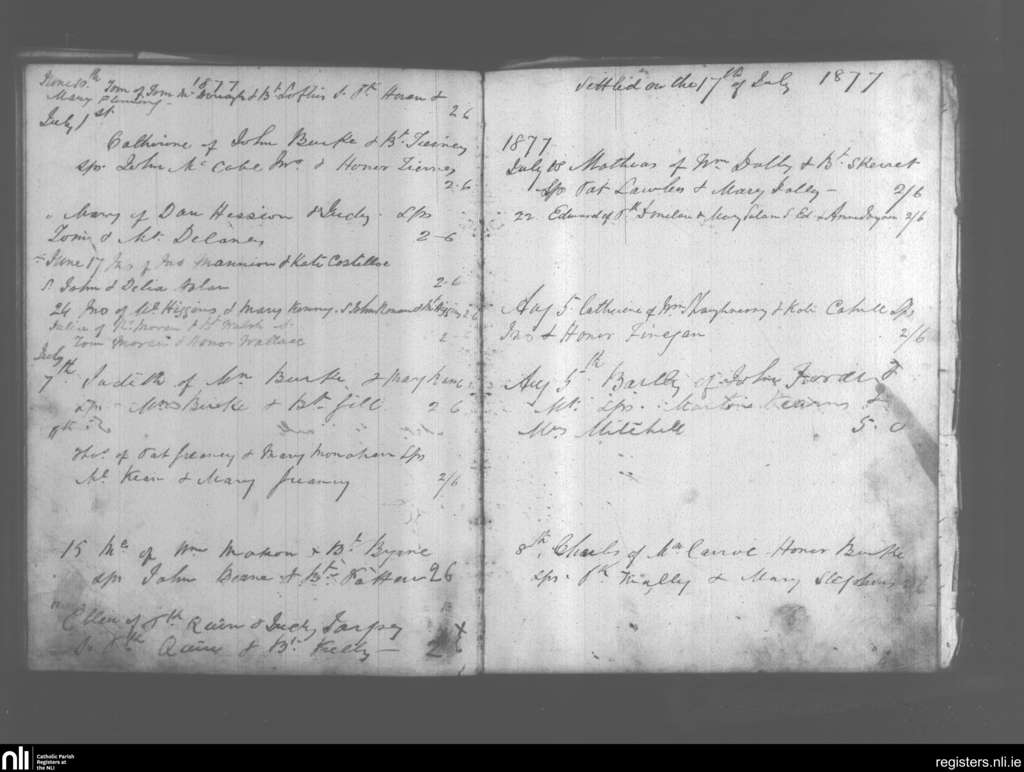 June 10th 1877
Tom of Tom Mc & Bt Loftus S. Pt Horan &
Mary Fleming - 2 6
July 1st
Catherine of John Burke & Bt. Tierney
sps John Mc Cabe Jno & Honor Tierney
2-6
" Mary of Dan Hession & Judy. Sps
Tom & Mt. Delaney 2-6
June 17 Jno of Jno Mannion & Kate Costelloe
S John & Delia Nolan 2-6
24 Jno of Ml Higgins & Mary Kenny. S John & Higgins 2 6
Julia of Moran & Bt Walsh S.
Tom Moran & Honor Wallace 2
July
7th Judith of Wm Burke & Mary Kane
sps - Mrs Burke & Bt. Gill 2 6
8th
Thos. of Pat Greaney & Mary Monahan Sps
Ml Kean & Mary Greaney 2/6
15 Mt of Wm Mahon & Bt. Byrne
sps John Beane & Bt. Patten 2 6
Ellen of Pth Quinn & Judy Tarpey
S. Pth Quinn & Bt. Kelly - 2 6
Settled on the 17th of July 1877
1877
July 18 Mathias of Wm Dolly & Bt. Skerret
Sps Pat Lawless & Mary Dolly - 2/6
22 Edward of Pt & Mary S Ed & Anne 2/6
Aug 5 Catherine of Wm Shaughnessy & Kate Cahill Sps
Jno & Honor Finegan 2/6
Aug 5th Bartly of John Forde &
Mt. Sps. Martin Kearns &
Mrs Mitchell 5. 0
8th. Charls of Honor Burke
sps. Pt & Mary Stephens 2 6
nli
Catholic Parish
Registers at
the NLI
registers.nli.ie